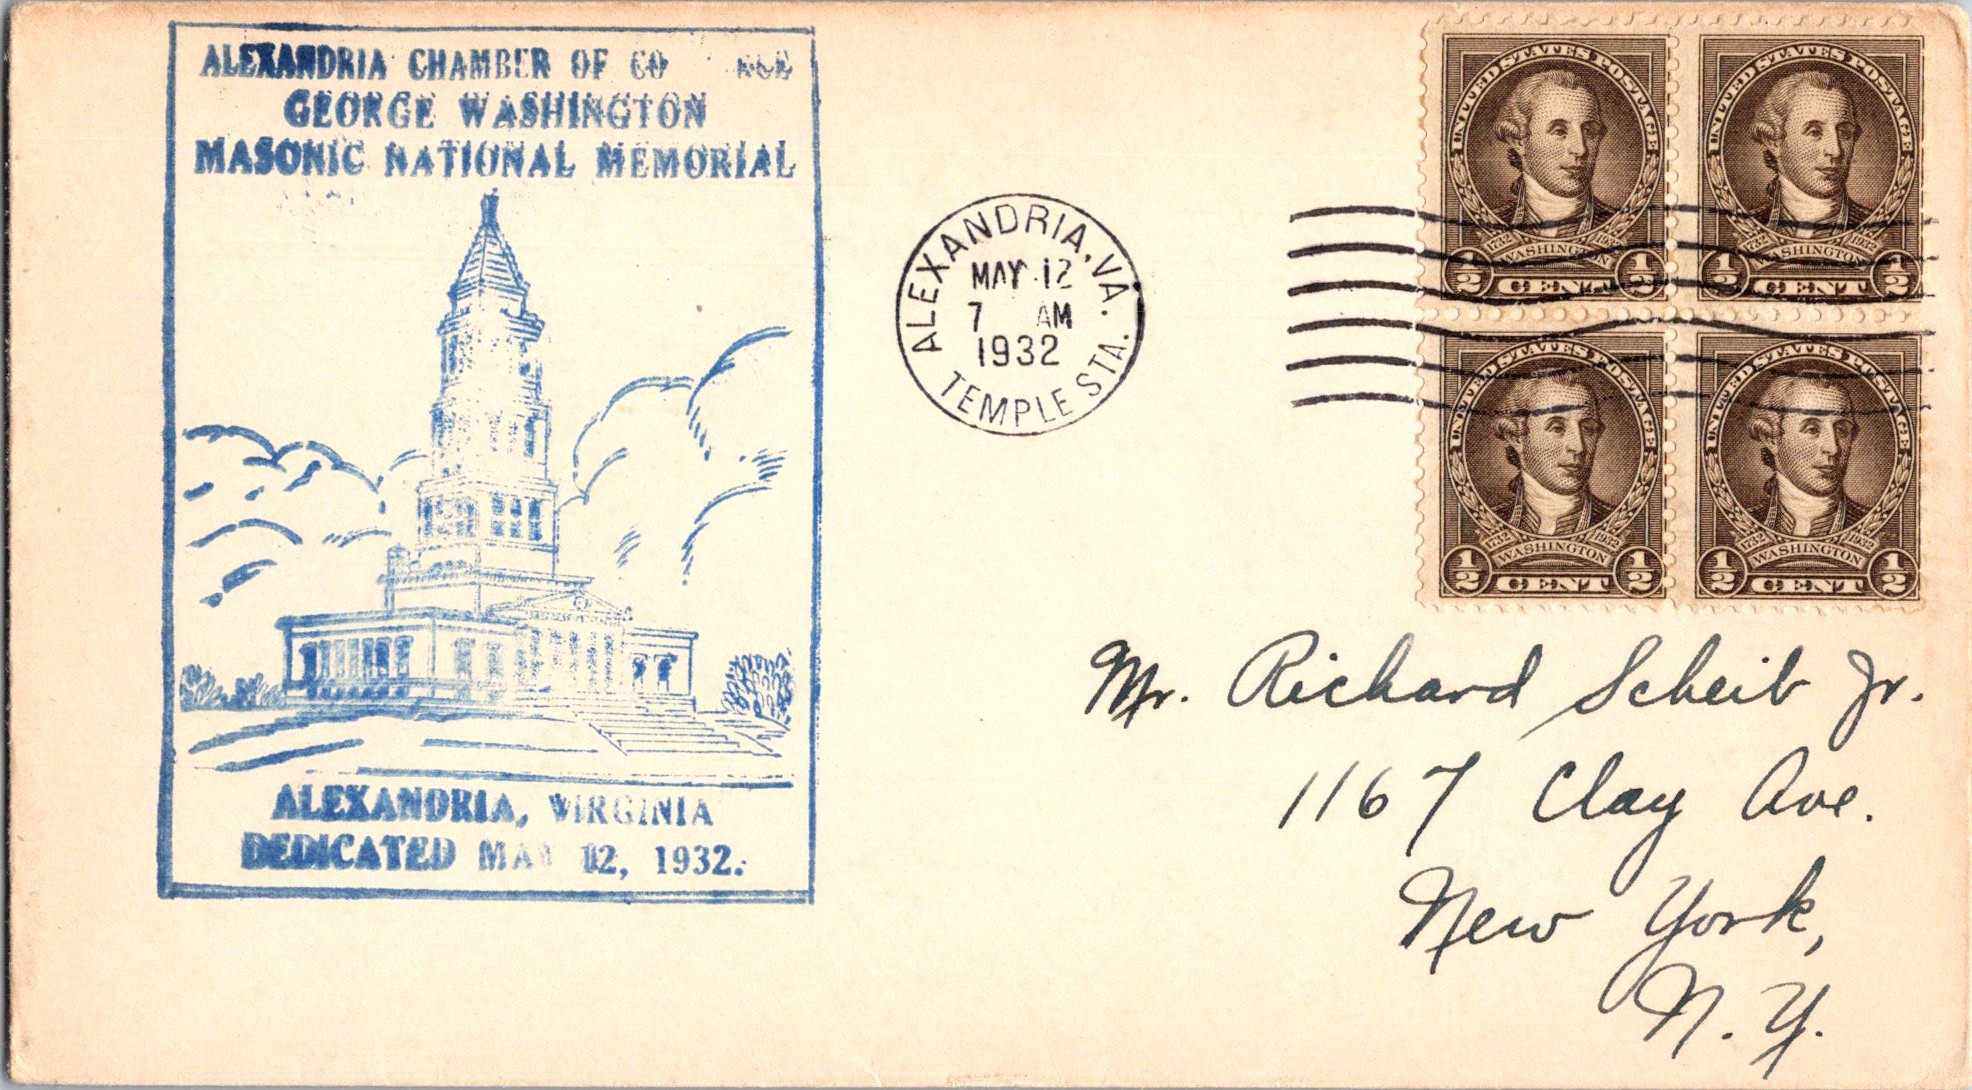 ALEXANDRIA CHAMBER OF
GEORGE WASHINGTON
MASONIC NATIONAL MEMORIAL
ALEXANDRIA, VIRGINIA
DEDICATED MAY 12, 1932.
ALEXANDRIA, VA.
MAY 12
7 AM
1932
TEMPLE STA.
UNITED STATES POSTAGE
1732 WASHINGTON 1932
1/2 CENT 1/2
UNITED STATES POSTAGE
1732 WASHINGTON 1932
1/2 CENT 1/2
UNITED STATES POSTAGE
1732 WASHINGTON 1932
1/2 CENT 1/2
UNITED STATES POSTAGE
1732 WASHINGTON 1932
1/2 CENT 1/2
Mr. Richard Scheib Jr.
1167 Clay Ave.
New York,
N. Y.